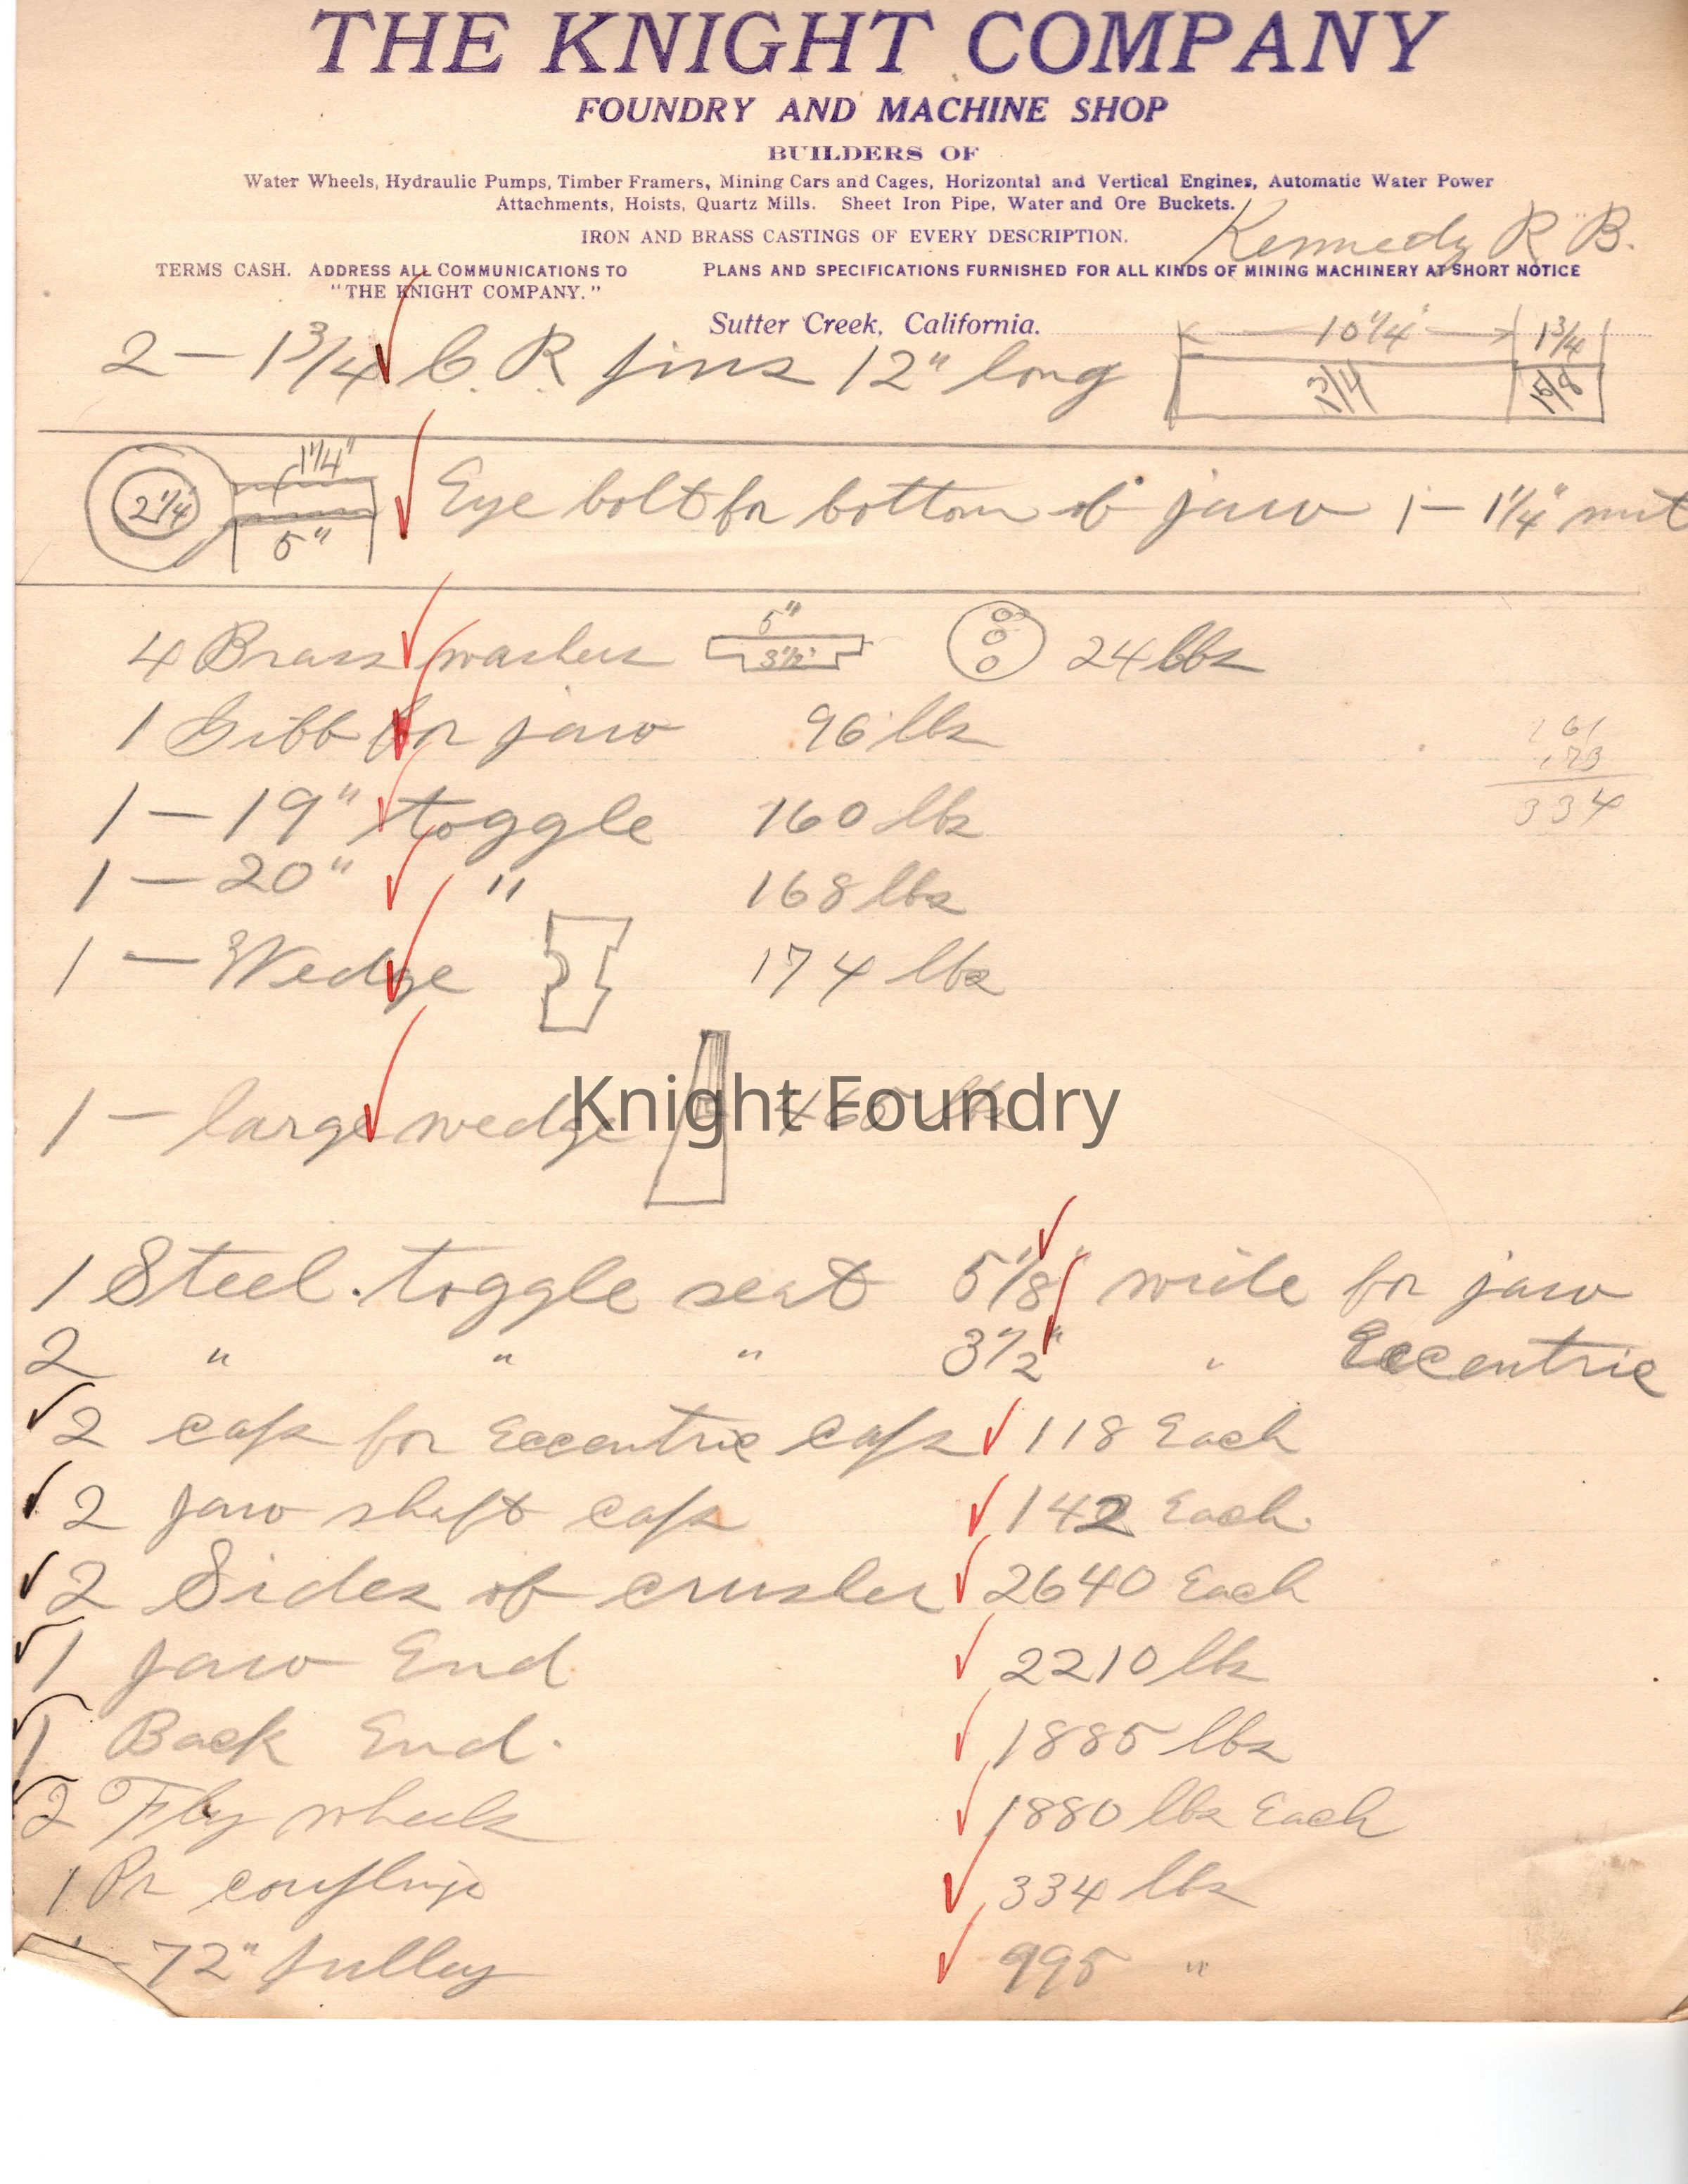 THE KNIGHT COMPANY
FOUNDRY AND MACHINE SHOP
BUILDERS OF
Water Wheels, Hydraulic Pumps, Timber Framers, Mining Cars and Cages, Horizontal and Vertical Engines, Automatic Water Power
Attachments, Hoists, Quartz Mills. Sheet Iron Pipe, Water and Ore Buckets.
Kennedy R B.
IRON AND BRASS CASTINGS OF EVERY DESCRIPTION.
TERMS CASH. ADDRESS ALL COMMUNICATIONS TO
"THE KNIGHT COMPANY."
PLANS AND SPECIFICATIONS FURNISHED FOR ALL KINDS OF MINING MACHINERY AT SHORT NOTICE
Sutter Creek, California.
2 — 1 3/4 C. R. pins 12" long
10 1/4" 1 3/4
1 3/4
2 1/4 1 1/4" 5"
Eye bolt for bottom of jaw 1 — 1 1/4" nut
4 Brass washers 5" 3 1/2" 24 lbs
1 Gibb for jaw 96 lbs
161
173
334
1 — 19" toggle 160 lbs
1 — 20" " 168 lbs
1 — Wedge 174 lbs
1 — large wedge 465 lbs
Knight Foundry
1 Steel toggle seat 5 1/8" wide for jaw
2 " " " 3 1/2" " Eccentric
2 caps for Eccentric caps 118 Each
2 Jaw shaft caps 142 Each
2 Sides of crusher 2640 Each
1 Jaw End 2210 lbs
1 Back End. 1885 lbs
2 Fly wheels 1880 lbs Each
1 Pr couplings 334 lbs
1 - 72" pulley 995 "